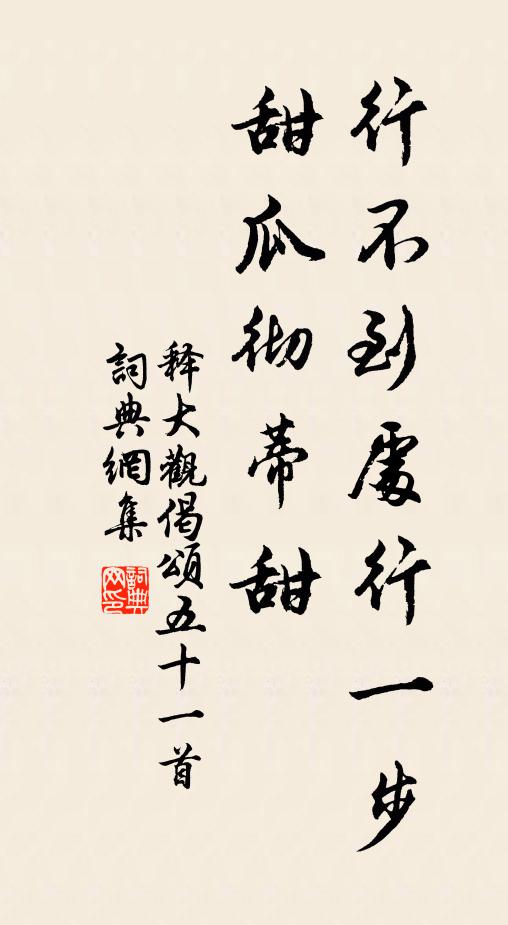 行不到處行一步
甜瓜彻蒂甜
释大觀偈頌五十一首
詞典網集
詞典網印